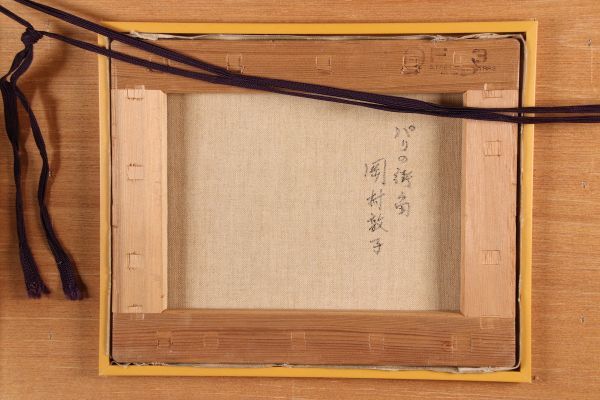 パリの街角
岡村敦子